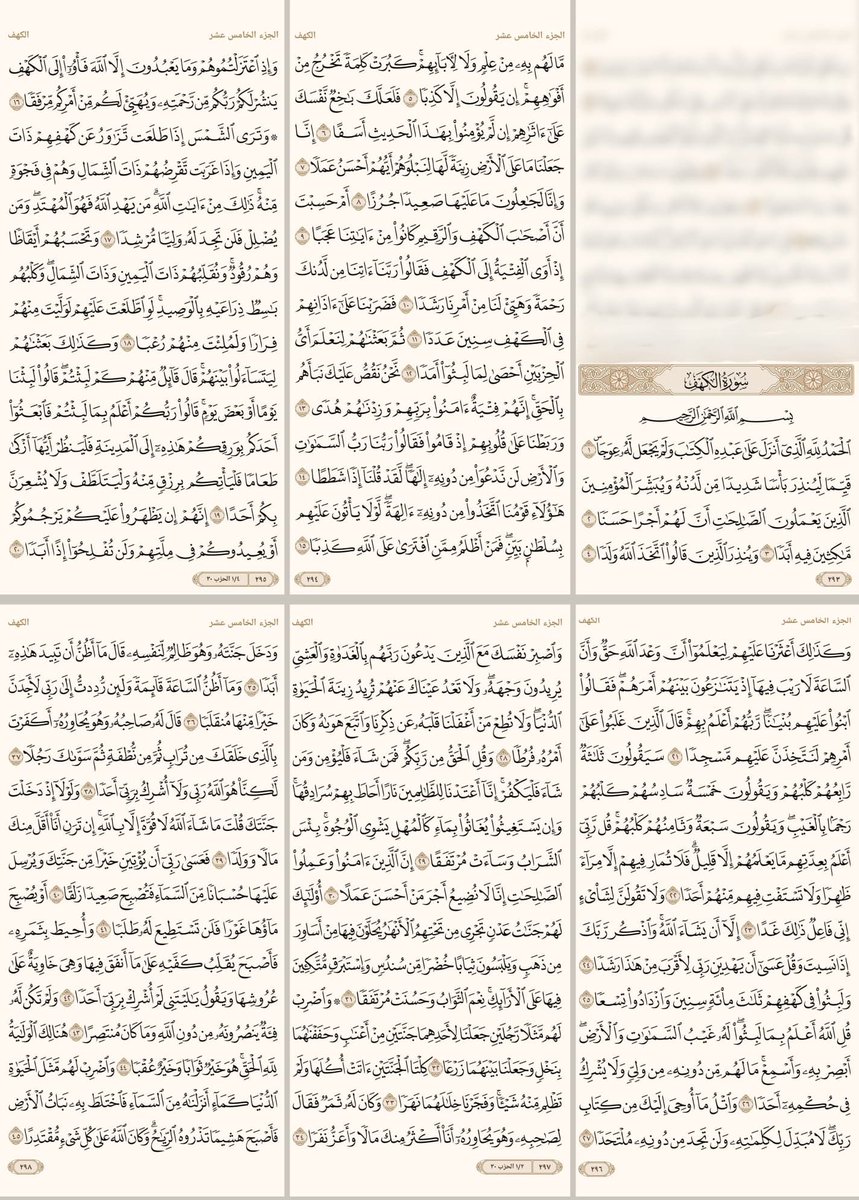 سُورَةُ الكَهْفِ
بِسْمِ ٱللَّهِ ٱلرَّحْمَٰنِ ٱلرَّحِيمِ
ٱلْحَمْدُ لِلَّهِ ٱلَّذِىٓ أَنزَلَ عَلَىٰ عَبْدِهِ ٱلْكِتَٰبَ وَلَمْ يَجْعَل لَّهُۥ عِوَجَاۜ ١
قَيِّمًا لِّيُنذِرَ بَأْسًا شَدِيدًا مِّن لَّدُنْهُ وَيُبَشِّرَ ٱلْمُؤْمِنِينَ
ٱلَّذِينَ يَعْمَلُونَ ٱلصَّٰلِحَٰتِ أَنَّ لَهُمْ أَجْرًا حَسَنًا ٢
مَّٰكِثِينَ فِيهِ أَبَدًا ٣ وَيُنذِرَ ٱلَّذِينَ قَالُوا۟ ٱتَّخَذَ ٱللَّهُ وَلَدًا ٤
٢٩٣
الجزء الخامس عشر الكهف
مَّا لَهُم بِهِۦ مِنْ عِلْمٍ وَلَا لِءَابَآئِهِمْ ۚ كَبُرَتْ كَلِمَةً تَخْرُجُ مِنْ
أَفْوَٰهِهِمْ ۚ إِن يَقُولُونَ إِلَّا كَذِبًا ٥ فَلَعَلَّكَ بَٰخِعٌ نَّفْسَكَ
عَلَىٰٓ ءَاثَٰرِهِمْ إِن لَّمْ يُؤْمِنُوا۟ بِهَٰذَا ٱلْحَدِيثِ أَسَفًا ٦ إِنَّا
جَعَلْنَا مَا عَلَى ٱلْأَرْضِ زِينَةً لَّهَا لِنَبْلُوَهُمْ أَيُّهُمْ أَحْسَنُ عَمَلًا ٧
وَإِنَّا لَجَٰعِلُونَ مَا عَلَيْهَا صَعِيدًا جُرُزًا ٨ أَمْ حَسِبْتَ
أَنَّ أَصْحَٰبَ ٱلْكَهْفِ وَٱلرَّقِيمِ كَانُوا۟ مِنْ ءَايَٰتِنَا عَجَبًا ٩
إِذْ أَوَى ٱلْفِتْيَةُ إِلَى ٱلْكَهْفِ فَقَالُوا۟ رَبَّنَآ ءَاتِنَا مِن لَّدُنكَ
رَحْمَةً وَهَيِّئْ لَنَا مِنْ أَمْرِنَا رَشَدًا ١٠ فَضَرَبْنَا عَلَىٰٓ ءَاذَانِهِمْ
فِى ٱلْكَهْفِ سِنِينَ عَدَدًا ١١ ثُمَّ بَعَثْنَٰهُمْ لِنَعْلَمَ أَىُّ
ٱلْحِزْبَيْنِ أَحْصَىٰ لِمَا لَبِثُوٓا۟ أَمَدًا ١٢ نَّحْنُ نَقُصُّ عَلَيْكَ نَبَأَهُم
بِٱلْحَقِّ ۚ إِنَّهُمْ فِتْيَةٌ ءَامَنُوا۟ بِرَبِّهِمْ وَزِدْنَٰهُمْ هُدًى ١٣
وَرَبَطْنَا عَلَىٰ قُلُوبِهِمْ إِذْ قَامُوا۟ فَقَالُوا۟ رَبُّنَا رَبُّ ٱلسَّمَٰوَٰتِ
وَٱلْأَرْضِ لَن نَّدْعُوَا۟ مِن دُونِهِۦٓ إِلَٰهًا ۖ لَّقَدْ قُلْنَآ إِذًا شَطَطًا ١٤
هَٰٓؤُلَآءِ قَوْمُنَا ٱتَّخَذُوا۟ مِن دُونِهِۦٓ ءَالِهَةً ۖ لَّوْلَا يَأْتُونَ عَلَيْهِم
بِسُلْطَٰنٍۭ بَيِّنٍ ۖ فَمَنْ أَظْلَمُ مِمَّنِ ٱفْتَرَىٰ عَلَى ٱللَّهِ كَذِبًا ١٥
٢٩٤
الجزء الخامس عشر الكهف
وَإِذِ ٱعْتَزَلْتُمُوهُمْ وَمَا يَعْبُدُونَ إِلَّا ٱللَّهَ فَأْوُۥٓا۟ إِلَى ٱلْكَهْفِ
يَنشُرْ لَكُمْ رَبُّكُم مِّن رَّحْمَتِهِۦ وَيُهَيِّئْ لَكُم مِّنْ أَمْرِكُم مِّرْفَقًا ١٦
۞ وَتَرَى ٱلشَّمْسَ إِذَا طَلَعَت تَّزَٰوَرُ عَن كَهْفِهِمْ ذَاتَ
ٱلْيَمِينِ وَإِذَا غَرَبَت تَّقْرِضُهُمْ ذَاتَ ٱلشِّمَالِ وَهُمْ فِى فَجْوَةٍ
مِّنْهُ ۚ ذَٰلِكَ مِنْ ءَايَٰتِ ٱللَّهِ ۗ مَن يَهْدِ ٱللَّهُ فَهُوَ ٱلْمُهْتَدِ ۖ وَمَن
يُضْلِلْ فَلَن تَجِدَ لَهُۥ وَلِيًّا مُّرْشِدًا ١٧ وَتَحْسَبُهُمْ أَيْقَاظًا
وَهُمْ رُقُودٌ ۚ وَنُقَلِّبُهُمْ ذَاتَ ٱلْيَمِينِ وَذَاتَ ٱلشِّمَالِ ۖ وَكَلْبُهُم
بَٰسِطٌ ذِرَاعَيْهِ بِٱلْوَصِيدِ ۚ لَوِ ٱطَّلَعْتَ عَلَيْهِمْ لَوَلَّيْتَ مِنْهُمْ
فِرَارًا وَلَمُلِئْتَ مِنْهُمْ رُعْبًا ١٨ وَكَذَٰلِكَ بَعَثْنَٰهُمْ
لِيَتَسَآءَلُوا۟ بَيْنَهُمْ ۚ قَالَ قَآئِلٌ مِّنْهُمْ كَمْ لَبِثْتُمْ ۖ قَالُوا۟ لَبِثْنَا
يَوْمًا أَوْ بَعْضَ يَوْمٍ ۚ قَالُوا۟ رَبُّكُمْ أَعْلَمُ بِمَا لَبِثْتُمْ فَٱبْعَثُوٓا۟
أَحَدَكُم بِوَرِقِكُمْ هَٰذِهِۦٓ إِلَى ٱلْمَدِينَةِ فَلْيَنظُرْ أَيُّهَآ أَزْكَىٰ
طَعَامًا فَلْيَأْتِكُم بِرِزْقٍ مِّنْهُ وَلْيَتَلَطَّفْ وَلَا يُشْعِرَنَّ
بِكُمْ أَحَدًا ١٩ إِنَّهُمْ إِن يَظْهَرُوا۟ عَلَيْكُمْ يَرْجُمُوكُمْ
أَوْ يُعِيدُوكُمْ فِى مِلَّتِهِمْ وَلَن تُفْلِحُوٓا۟ إِذًا أَبَدًا ٢٠
٢٩٥ ١/٤ الحزب ٣٠
الجزء الخامس عشر الكهف
وَكَذَٰلِكَ أَعْثَرْنَا عَلَيْهِمْ لِيَعْلَمُوٓا۟ أَنَّ وَعْدَ ٱللَّهِ حَقٌّ وَأَنَّ
ٱلسَّاعَةَ لَا رَيْبَ فِيهَآ إِذْ يَتَنَٰزَعُونَ بَيْنَهُمْ أَمْرَهُمْ ۖ فَقَالُوا۟
ٱبْنُوا۟ عَلَيْهِم بُنْيَٰنًا ۖ رَّبُّهُمْ أَعْلَمُ بِهِمْ ۚ قَالَ ٱلَّذِينَ غَلَبُوا۟ عَلَىٰٓ
أَمْرِهِمْ لَنَتَّخِذَنَّ عَلَيْهِم مَّسْجِدًا ٢١ سَيَقُولُونَ ثَلَٰثَةٌ
رَّابِعُهُمْ كَلْبُهُمْ وَيَقُولُونَ خَمْسَةٌ سَادِسُهُمْ كَلْبُهُمْ
رَجْمًۢا بِٱلْغَيْبِ ۖ وَيَقُولُونَ سَبْعَةٌ وَثَامِنُهُمْ كَلْبُهُمْ ۚ قُل رَّبِّىٓ
أَعْلَمُ بِعِدَّتِهِم مَّا يَعْلَمُهُمْ إِلَّا قَلِيلٌ ۗ فَلَا تُمَارِ فِيهِمْ إِلَّا مِرَآءً
ظَٰهِرًا وَلَا تَسْتَفْتِ فِيهِم مِّنْهُمْ أَحَدًا ٢٢ وَلَا تَقُولَنَّ لِشَا۟ىْءٍ
إِنِّى فَاعِلٌ ذَٰلِكَ غَدًا ٢٣ إِلَّآ أَن يَشَآءَ ٱللَّهُ ۚ وَٱذْكُر رَّبَّكَ
إِذَا نَسِيتَ وَقُلْ عَسَىٰٓ أَن يَهْدِيَنِ رَبِّى لِأَقْرَبَ مِنْ هَٰذَا رَشَدًا ٢٤
وَلَبِثُوا۟ فِى كَهْفِهِمْ ثَلَٰثَ مِا۟ئَةٍ سِنِينَ وَٱزْدَادُوا۟ تِسْعًا ٢٥
قُلِ ٱللَّهُ أَعْلَمُ بِمَا لَبِثُوا۟ ۖ لَهُۥ غَيْبُ ٱلسَّمَٰوَٰتِ وَٱلْأَرْضِ ۖ
أَبْصِرْ بِهِۦ وَأَسْمِعْ ۚ مَا لَهُم مِّن دُونِهِۦ مِن وَلِىٍّ وَلَا يُشْرِكُ
فِى حُكْمِهِۦٓ أَحَدًا ٢٦ وَٱتْلُ مَآ أُوحِىَ إِلَيْكَ مِن كِتَابِ
رَبِّكَ ۖ لَا مُبَدِّلَ لِكَلِمَٰتِهِۦ وَلَن تَجِدَ مِن دُونِهِۦ مُلْتَحَدًا ٢٧
٢٩٦
الجزء الخامس عشر الكهف
وَٱصْبِرْ نَفْسَكَ مَعَ ٱلَّذِينَ يَدْعُونَ رَبَّهُم بِٱلْغَدَوٰةِ وَٱلْعَشِىِّ
يُرِيدُونَ وَجْهَهُۥ ۖ وَلَا تَعْدُ عَيْنَاكَ عَنْهُمْ تُرِيدُ زِينَةَ ٱلْحَيَوٰةِ
ٱلدُّنْيَا ۖ وَلَا تُطِعْ مَنْ أَغْفَلْنَا قَلْبَهُۥ عَن ذِكْرِنَا وَٱتَّبَعَ هَوَىٰهُ وَكَانَ
أَمْرُهُۥ فُرُطًا ٢٨ وَقُلِ ٱلْحَقُّ مِن رَّبِّكُمْ ۖ فَمَن شَآءَ فَلْيُؤْمِن وَمَن
شَآءَ فَلْيَكْفُرْ ۚ إِنَّآ أَعْتَدْنَا لِلظَّٰلِمِينَ نَارًا أَحَاطَ بِهِمْ سُرَادِقُهَا ۚ
وَإِن يَسْتَغِيثُوا۟ يُغَاثُوا۟ بِمَآءٍ كَٱلْمُهْلِ يَشْوِى ٱلْوُجُوهَ ۚ بِئْسَ
ٱلشَّرَابُ وَسَآءَتْ مُرْتَفَقًا ٢٩ إِنَّ ٱلَّذِينَ ءَامَنُوا۟ وَعَمِلُوا۟
ٱلصَّٰلِحَٰتِ إِنَّا لَا نُضِيعُ أَجْرَ مَنْ أَحْسَنَ عَمَلًا ٣٠ أُو۟لَٰٓئِكَ
لَهُمْ جَنَّٰتُ عَدْنٍ تَجْرِى مِن تَحْتِهِمُ ٱلْأَنْهَٰرُ يُحَلَّوْنَ فِيهَا مِنْ أَسَاوِرَ
مِن ذَهَبٍ وَيَلْبَسُونَ ثِيَابًا خُضْرًا مِّن سُندُسٍ وَإِسْتَبْرَقٍ مُّتَّكِـِٔينَ
فِيهَا عَلَى ٱلْأَرَآئِكِ ۚ نِعْمَ ٱلثَّوَابُ وَحَسُنَتْ مُرْتَفَقًا ٣١ ۞ وَٱضْرِبْ
لَهُم مَّثَلًا رَّجُلَيْنِ جَعَلْنَا لِأَحَدِهِمَا جَنَّتَيْنِ مِنْ أَعْنَٰبٍ وَحَفَفْنَٰهُمَا
بِنَخْلٍ وَجَعَلْنَا بَيْنَهُمَا زَرْعًا ٣٢ كِلْتَا ٱلْجَنَّتَيْنِ ءَاتَتْ أُكُلَهَا وَلَمْ
تَظْلِم مِّنْهُ شَيْـًٔا ۚ وَفَجَّرْنَا خِلَٰلَهُمَا نَهَرًا ٣٣ وَكَانَ لَهُۥ ثَمَرٌ فَقَالَ
لِصَٰحِبِهِۦ وَهُوَ يُحَاوِرُهُۥٓ أَنَا۠ أَكْثَرُ مِنكَ مَالًا وَأَعَزُّ نَفَرًا ٣٤
٢٩٧ ١/٢ الحزب ٣٠
الجزء الخامس عشر الكهف
وَدَخَلَ جَنَّتَهُۥ وَهُوَ ظَالِمٌ لِّنَفْسِهِۦ قَالَ مَآ أَظُنُّ أَن تَبِيدَ هَٰذِهِۦٓ
أَبَدًا ٣٥ وَمَآ أَظُنُّ ٱلسَّاعَةَ قَآئِمَةً وَلَئِن رُّدِدتُّ إِلَىٰ رَبِّى لَأَجِدَنَّ
خَيْرًا مِّنْهَا مُنقَلَبًا ٣٦ قَالَ لَهُۥ صَاحِبُهُۥ وَهُوَ يُحَاوِرُهُۥٓ أَكَفَرْتَ
بِٱلَّذِى خَلَقَكَ مِن تُرَابٍ ثُمَّ مِن نُّطْفَةٍ ثُمَّ سَوَّىٰكَ رَجُلًا ٣٧
لَّٰكِنَّا۠ هُوَ ٱللَّهُ رَبِّى وَلَآ أُشْرِكُ بِرَبِّىٓ أَحَدًا ٣٨ وَلَوْلَآ إِذْ دَخَلْتَ
جَنَّتَكَ قُلْتَ مَا شَآءَ ٱللَّهُ لَا قُوَّةَ إِلَّا بِٱللَّهِ ۚ إِن تَرَنِ أَنَا۠ أَقَلَّ مِنكَ
مَالًا وَوَلَدًا ٣٩ فَعَسَىٰ رَبِّىٓ أَن يُؤْتِيَنِ خَيْرًا مِّن جَنَّتِكَ وَيُرْسِلَ
عَلَيْهَا حُسْبَانًا مِّنَ ٱلسَّمَآءِ فَتُصْبِحَ صَعِيدًا زَلَقًا ٤٠ أَوْ يُصْبِحَ
مَآؤُهَا غَوْرًا فَلَن تَسْتَطِيعَ لَهُۥ طَلَبًا ٤١ وَأُحِيطَ بِثَمَرِهِۦ
فَأَصْبَحَ يُقَلِّبُ كَفَّيْهِ عَلَىٰ مَآ أَنفَقَ فِيهَا وَهِىَ خَاوِيَةٌ عَلَىٰ
عُرُوشِهَا وَيَقُولُ يَٰلَيْتَنِى لَمْ أُشْرِكْ بِرَبِّىٓ أَحَدًا ٤٢ وَلَمْ تَكُن لَّهُۥ
فِئَةٌ يَنصُرُونَهُۥ مِن دُونِ ٱللَّهِ وَمَا كَانَ مُنتَصِرًا ٤٣ هُنَالِكَ ٱلْوَلَٰيَةُ
لِلَّهِ ٱلْحَقِّ ۚ هُوَ خَيْرٌ ثَوَابًا وَخَيْرٌ عُقْبًا ٤٤ وَٱضْرِبْ لَهُم مَّثَلَ ٱلْحَيَوٰةِ
ٱلدُّنْيَا كَمَآءٍ أَنزَلْنَٰهُ مِنَ ٱلسَّمَآءِ فَٱخْتَلَطَ بِهِۦ نَبَاتُ ٱلْأَرْضِ
فَأَصْبَحَ هَشِيمًا تَذْرُوهُ ٱلرِّيَٰحُ ۗ وَكَانَ ٱللَّهُ عَلَىٰ كُلِّ شَىْءٍ مُّقْتَدِرًا ٤٥
٢٩٨